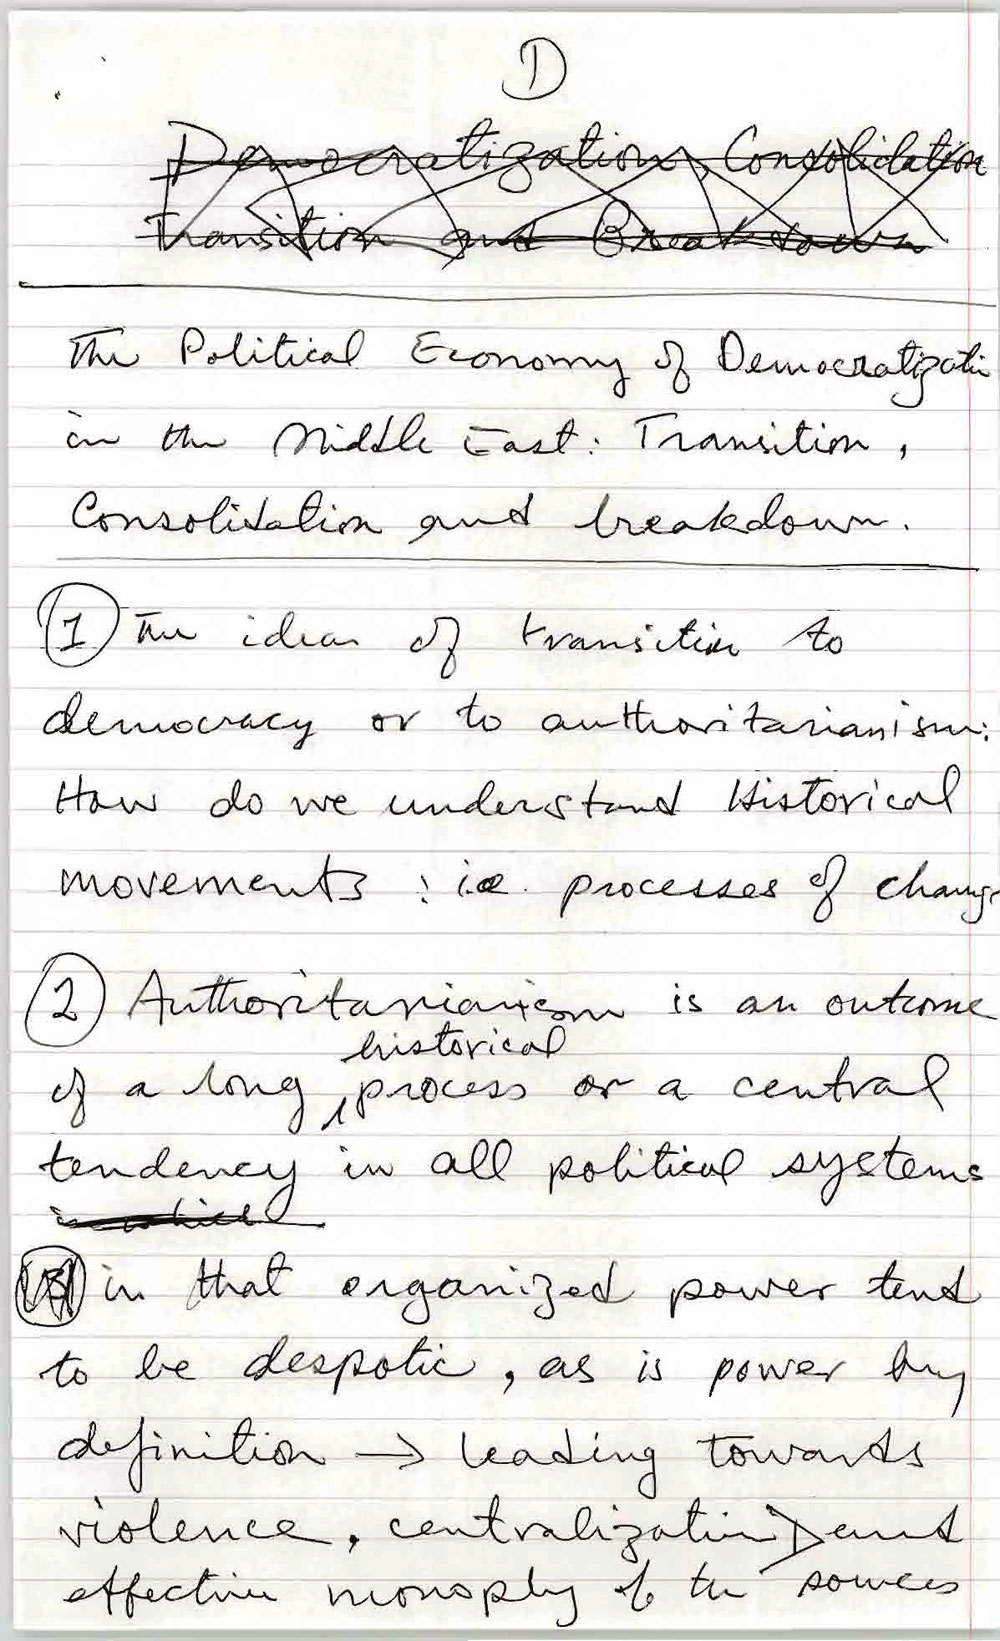 D
Democratization, Consolidation
Transition and Breakdown
The Political Economy of Democratizati
in the Middle East: Transition,
Consolidation and breakdown.
1 The idea of transition to
democracy or to authoritarianism:
How do we understand Historical
movements : i.e. processes of change
2 Authoritarianism is an outcome
historical
of a long process or a central
tendency in all political systems
in which
in that organized power tend
to be despotic, as is power by
definition → leading towards
violence, centralization and
effective monoply of the sources